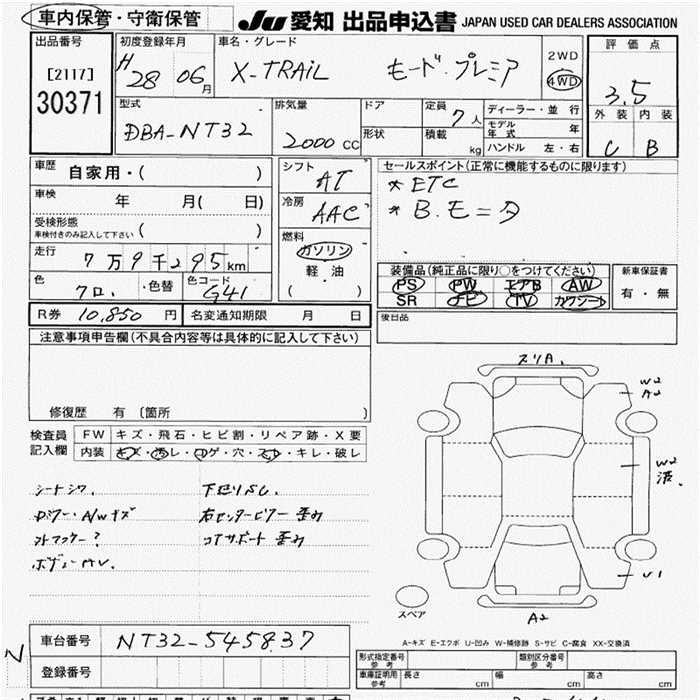 車内保管・守衛保管 JU 愛知 出品申込書 JAPAN USED CAR DEALERS ASSOCIATION
出品番号 初度登録年月 車名・グレード 評価点
[2117] H 28 06月 X-TRAIL モード・プレミア 2WD 4WD 3.5
30371 外装 内装
型式 排気量 ドア 定員 7人 ディーラー・並行
DBA-NT32 2000CC 形状 積載 kg モデル年式 年
ハンドル 左・右 C B
車歴 自家用・( ) シフト AT セールスポイント(正常に機能するものに限ります)
車検 年 月( 日) 冷房 AAC * ETC
受検形態 ( ) * B.E=タ
車検付きのみ記入して下さい
走行 7万9千295km 燃料 ガソリン 軽油 ( )
色 7ロ. ・色替 色コード G41 装備品(純正品に限り○をつけてください) 新車保証書
PS PW エアB AW 有・無
SR ナビ TV カワシート
R券 10,850円 名変通知期限 月 日 後日品
注意事項申告欄(不具合内容等は具体的に記入して下さい)
修復歴 有 〔箇所 〕
検査員記入欄 FW キズ・飛石・ヒビ割・リペア跡・X要
内装 キズ・汚レ・コゲ・穴・スレ・キレ・破レ
スリA.
W2
A2
W2
波.
U1
A2
スペア
シートシワ. 下廻りサビ.
A/Wキズ 右センターピラー歪み
外マフラー? コアサポート 歪み
A-キズ E-エクボ U-凹み W-補修跡 S-サビ C-腐食 XX-交換済
車台番号 NT32-545837
登録番号
N
形式指定番号 参考 類別区分番号 参考
車庫証明用 参考 長さ cm 幅 cm 高さ cm